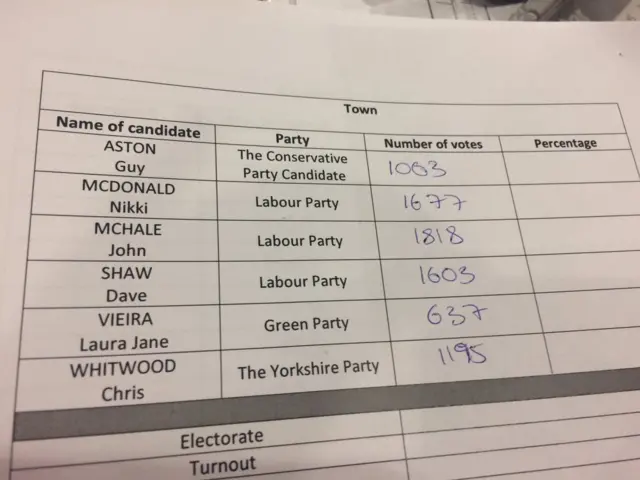 Town
Name of candidate Party Number of votes Percentage
ASTON
Guy
The Conservative
Party Candidate
1063
MCDONALD
Nikki
Labour Party
1677
MCHALE
John
Labour Party
1818
SHAW
Dave
Labour Party
1603
VIEIRA
Laura Jane
Green Party
637
WHITWOOD
Chris
The Yorkshire Party
1195
Electorate
Turnout